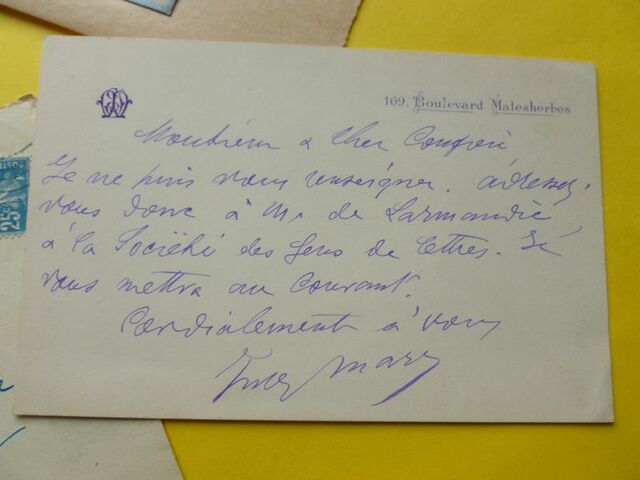 169, Boulevard Malesherbes
Monsieur & Cher Confrère
Je ne puis vous renseigner. adressez-
vous donc à Mr de Larmandie,
à la Société des Gens de Lettres. Il
vous mettra au courant.
Cordialement à vous
Jules Mary
25c